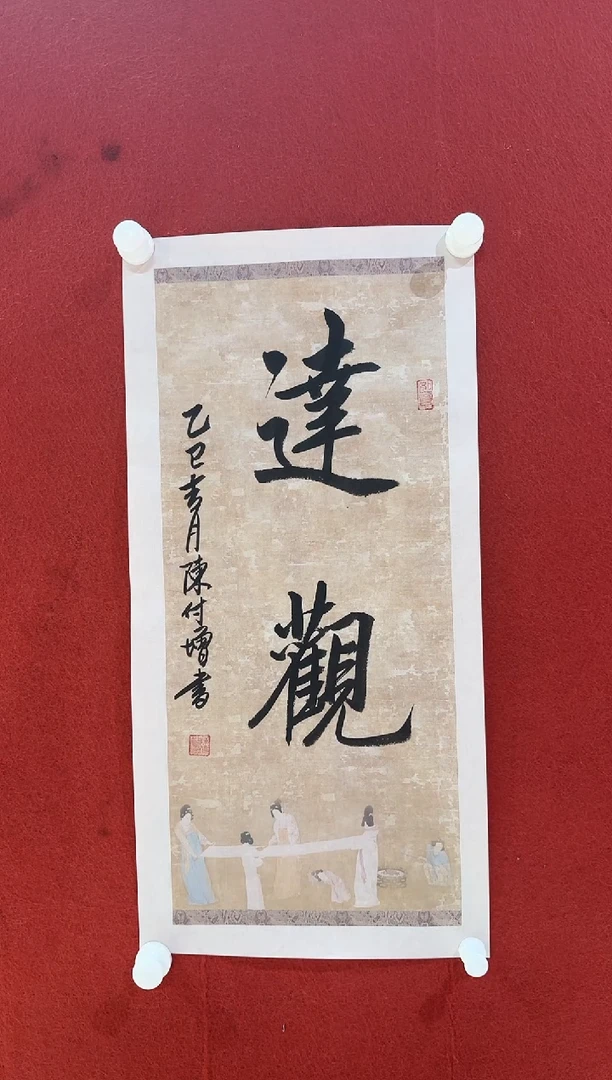 達觀
乙巳吉月陳付增書